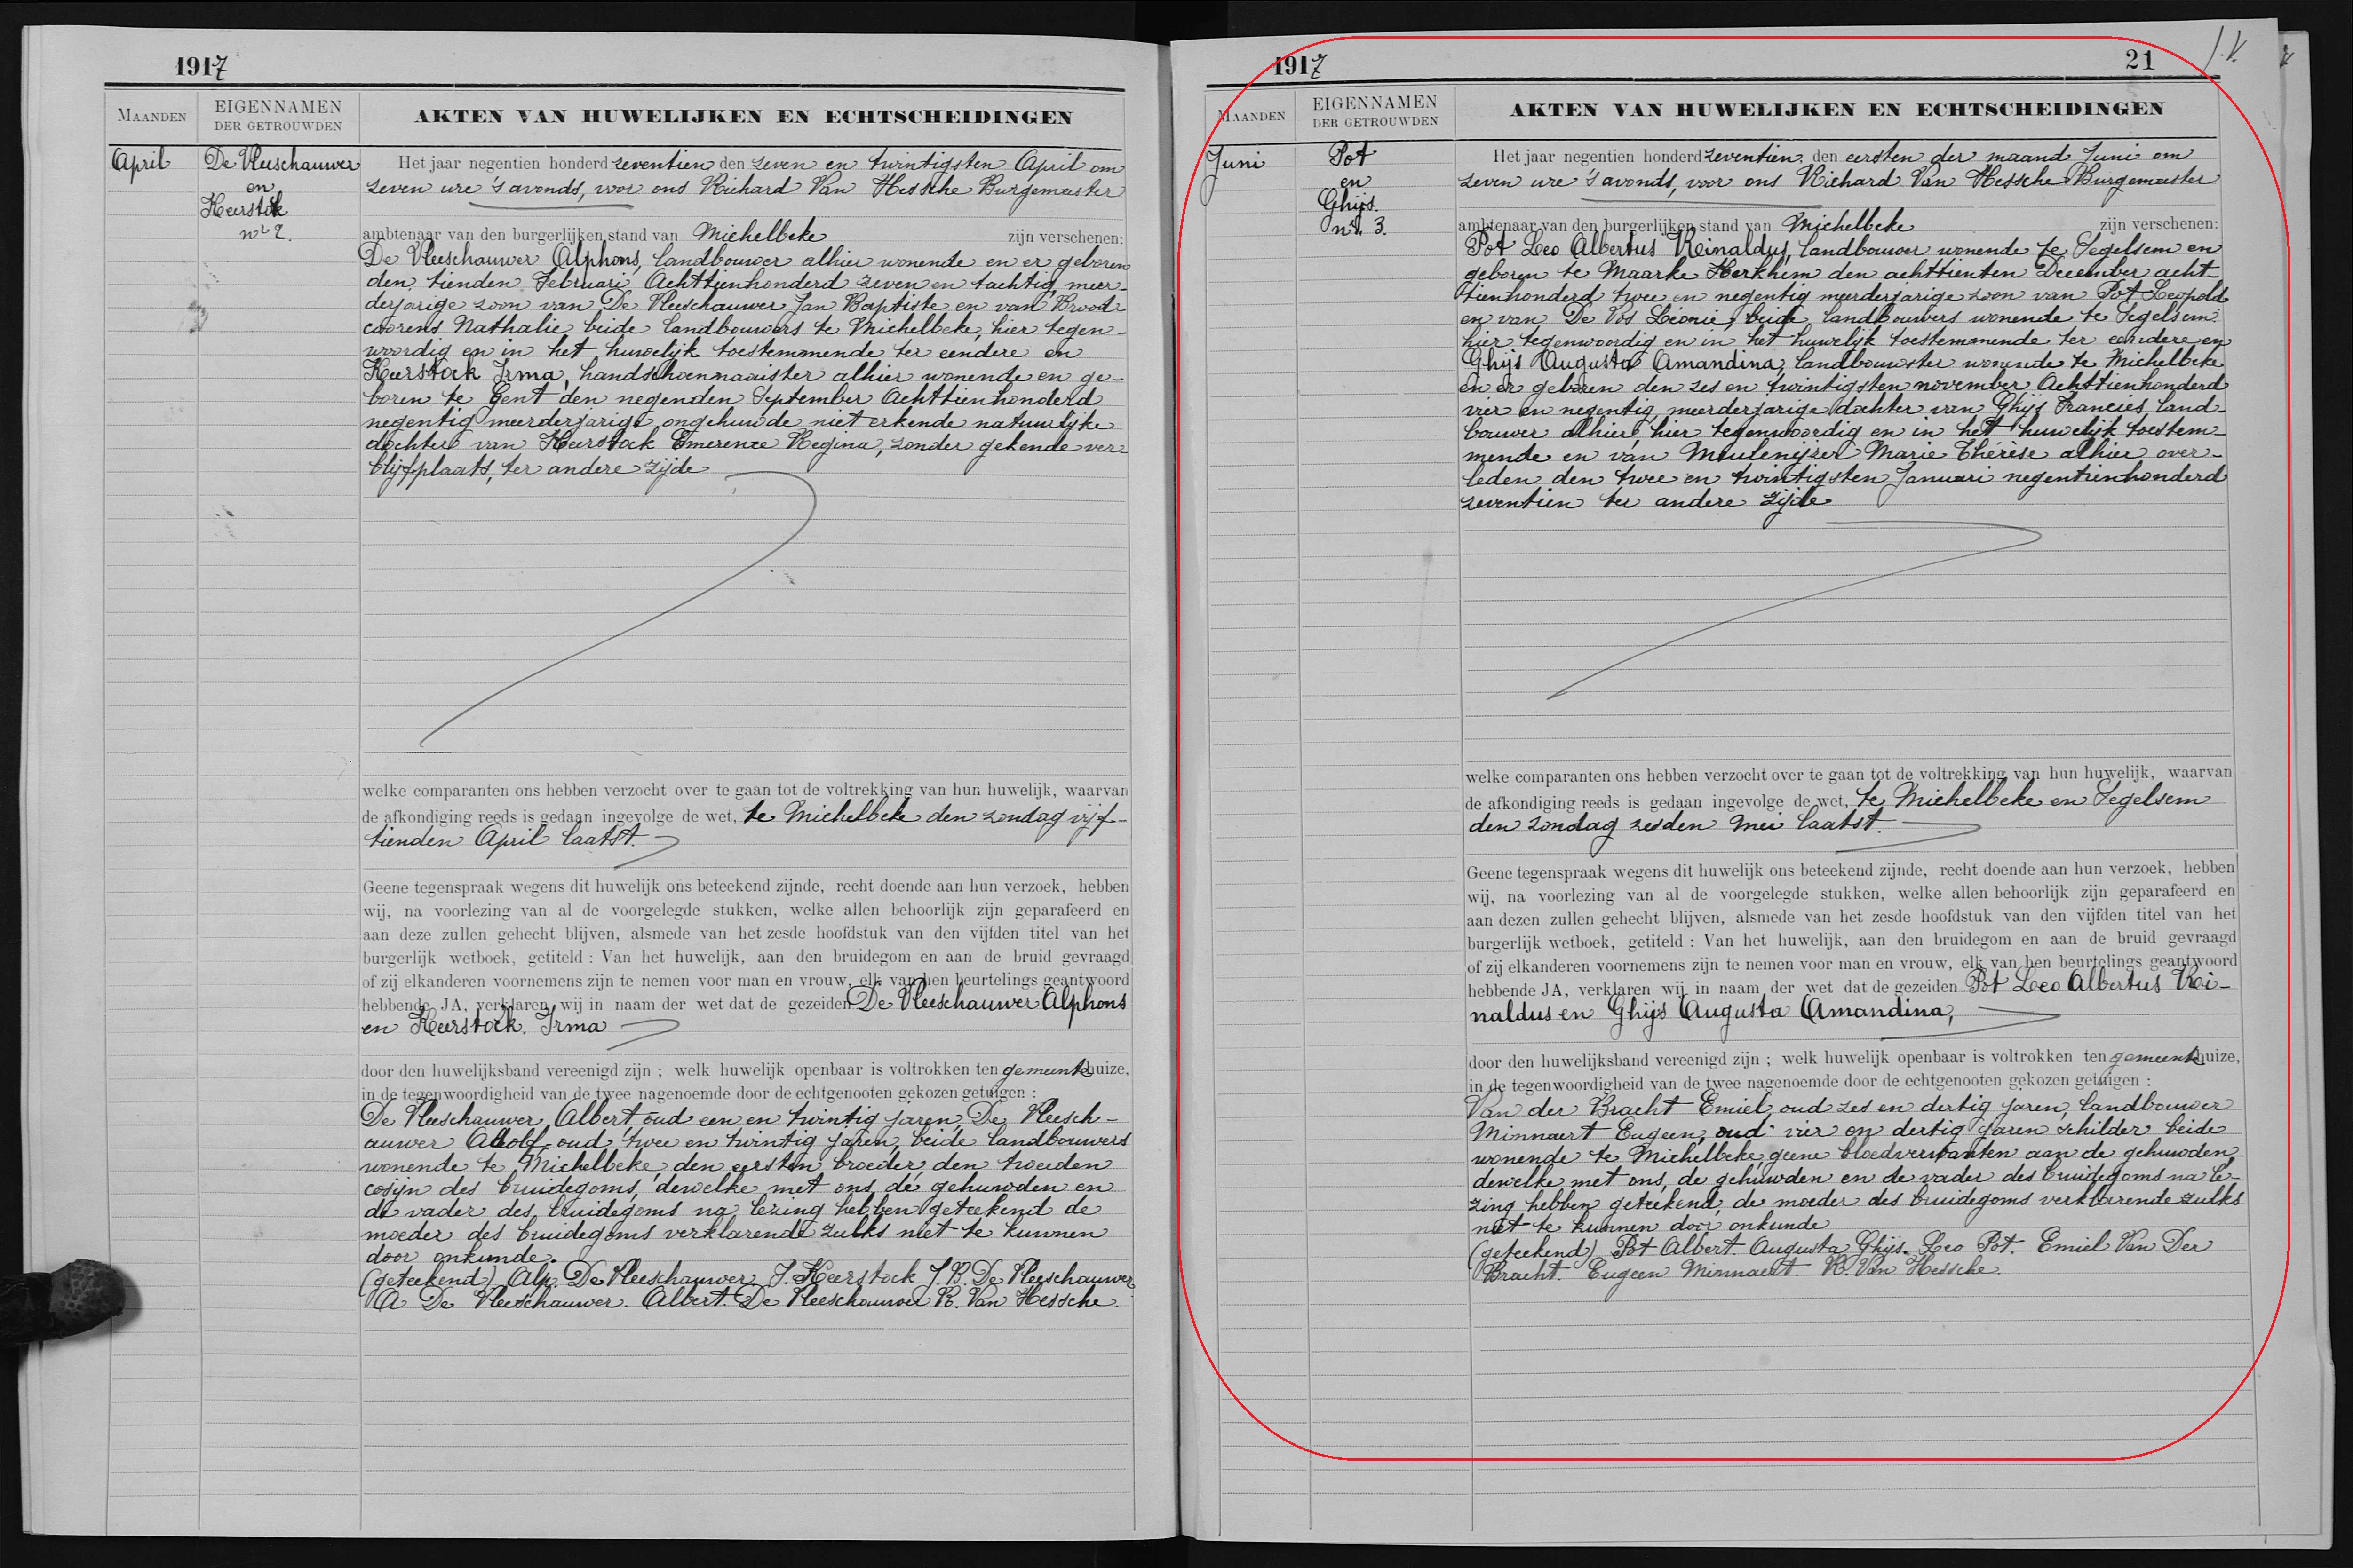 1917
MAANDEN
EIGENNAMEN
DER GETROUWDEN
AKTEN VAN HUWELIJKEN EN ECHTSCHEIDINGEN
April
De Vleeschauwer
en
Keerstok
nr 2.
Het jaar negentien honderd zeventien den zeven en twintigsten April om
zeven ure 's avonds, voor ons Richard Van Hessche Burgemeester
ambtenaar van den burgerlijken stand van Michelbeke zijn verschenen:
De Vleeschauwer Alphons, landbouwer alhier wonende en er geboren
den tienden Februari Achttienhonderd zeven en tachtig, meer-
derjarige zoon van De Vleeschauwer Jan Baptiste en van Brood-
coorens Nathalie beide landbouwers te Michelbeke, hier tegen-
woordig en in het huwelijk toestemmende ter eendere en
Keerstock Irma, handschoenmaakster alhier wonende en ge-
boren te Gent den negenden September Achttienhonderd
negentig meerderjarige ongehuwde niet erkende natuurlijke
dochter van Keerstock Emerence Regina, zonder gekende ver-
blijfplaats, ter andere zijde
welke comparanten ons hebben verzocht over te gaan tot de voltrekking van hun huwelijk, waarvan
de afkondiging reeds is gedaan ingevolge de wet, te Michelbeke den zondag vijf-
tienden April laatst.
Geene tegenspraak wegens dit huwelijk ons beteekend zijnde, recht doende aan hun verzoek, hebben
wij, na voorlezing van al de voorgelegde stukken, welke allen behoorlijk zijn geparafeerd en
aan deze zullen gehecht blijven, alsmede van het zesde hoofdstuk van den vijfden titel van het
burgerlijk wetboek, getiteld : Van het huwelijk, aan den bruidegom en aan de bruid gevraagd
of zij elkanderen voornemens zijn te nemen voor man en vrouw, elk van hen beurtelings geantwoord
hebbende JA, verklaren wij in naam der wet dat de gezeiden De Vleeschauwer Alphons
en Keerstock Irma
door den huwelijksband vereenigd zijn ; welk huwelijk openbaar is voltrokken ten gemeentehuize,
in de tegenwoordigheid van de twee nagenoemde door de echtgenooten gekozen getuigen :
De Vleeschauwer Albert oud een en twintig jaren, De Vleesch-
auwer Adolf oud twee en twintig jaren, beide landbouwers
wonende te Michelbeke den eersten broeder, den tweeden
cosijn des bruidegoms, dewelke met ons, de gehuwden en
de vader des bruidegoms na lezing hebben geteekend de
moeder des bruidegoms verklarende zulks niet te kunnen
door onkunde.
(geteekend) Alp. De Vleeschauwer I. Keerstock J. B. De Vleeschauwer
A De Vleeschauwer. Albert De Vleeschauwer R. Van Hessche.
1917
21
MAANDEN
EIGENNAMEN
DER GETROUWDEN
AKTEN VAN HUWELIJKEN EN ECHTSCHEIDINGEN
Juni
Pot
en
Ghijs.
nr. 3.
Het jaar negentien honderd zeventien den eersten der maand Juni om
zeven ure 's avonds, voor ons Richard Van Hessche Burgemeester
ambtenaar van den burgerlijken stand van Michelbeke zijn verschenen:
Pot Leo Albertus Reinaldus, landbouwer wonende te Segelsem en
geboren te Maarke Kerkhem den achttienten December acht-
tienhonderd twee en negentig meerderjarige zoon van Pot Leopold
en van De Vos Léonie, beide landbouwers wonende te Segelsem
hier tegenwoordig en in het huwelijk toestemmende ter eendere en
Ghijs Augusta Amandina, landbouwster wonende te Michelbeke
en er geboren den zes en twintigsten november Achttienhonderd
vier en negentig meerderjarige dochter van Ghijs Francies land-
bouwer alhier, hier tegenwoordig en in het huwelijk toestem-
mende en van Meulenijzer Marie Thérèse alhier over-
leden den twee en twintigsten Januari negentienhonderd
zeventien ter andere zijde
welke comparanten ons hebben verzocht over te gaan tot de voltrekking van hun huwelijk, waarvan
de afkondiging reeds is gedaan ingevolge de wet, te Michelbeke en Segelsem
den zondag zesden Mei laatst.
Geene tegenspraak wegens dit huwelijk ons beteekend zijnde, recht doende aan hun verzoek, hebben
wij, na voorlezing van al de voorgelegde stukken, welke allen behoorlijk zijn geparafeerd en
aan dezen zullen gehecht blijven, alsmede van het zesde hoofdstuk van den vijfden titel van het
burgerlijk wetboek, getiteld : Van het huwelijk, aan den bruidegom en aan de bruid gevraagd
of zij elkanderen voornemens zijn te nemen voor man en vrouw, elk van hen beurtelings geantwoord
hebbende JA, verklaren wij in naam der wet dat de gezeiden Pot Leo Albertus Rei-
naldus en Ghijs Augusta Amandina,
door den huwelijksband vereenigd zijn ; welk huwelijk openbaar is voltrokken ten gemeentehuize,
in de tegenwoordigheid van de twee nagenoemde door de echtgenooten gekozen getuigen :
Van der Bracht Emiel, oud zes en dertig jaren, landbouwer
Minnaert Eugeen, oud vier en dertig jaren schilder beide
wonende te Michelbeke, geene bloedverwanten aan de gehuwden,
dewelke met ons, de gehuwden en de vader des bruidegoms na le-
zing hebben geteekend, de moeder des bruidegoms verklarende zulks
niet te kunnen door onkunde
(geteekend) Pot Albert Augusta Ghijs. Leo Pot. Emiel Van Der
Bracht. Eugeen Minnaert. R. Van Hessche.